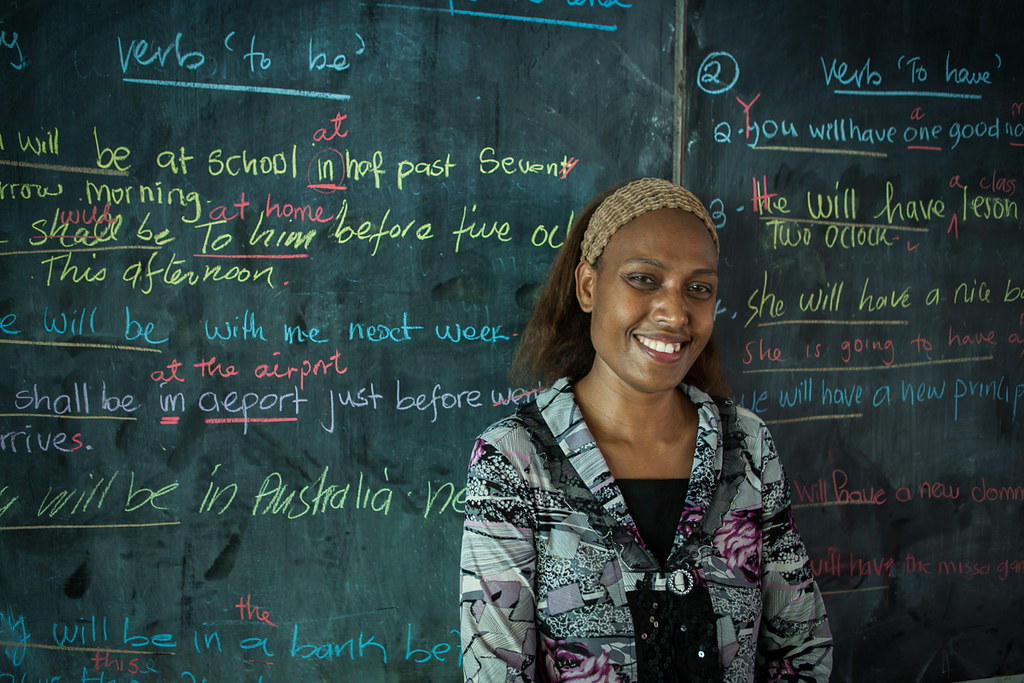 verb 'to be'
will be at school in haf past Seven
at
rrow morning.
shall be To him before five
will at home
This afternoon.
will be with me next week.
at the airport
shall be in aeport just before
rrives.
will be in Australia
the
will be in a bank be
this
2 verb 'To have'
Y a
2. you will have one good
a class
3. He will have leson
Two oclock.
she will have a nice
she is going to have a
we will have a new princip
will have a new
will have the missa